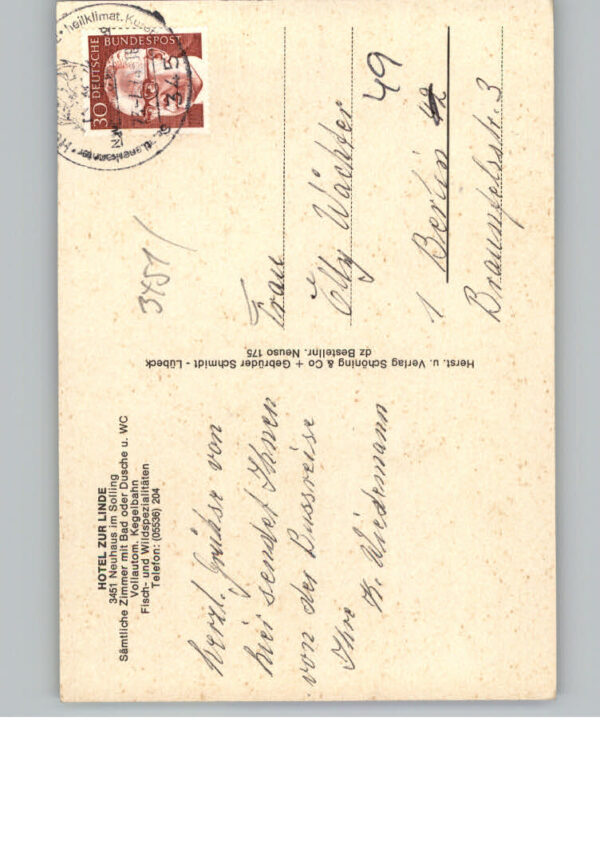 HOTEL ZUR LINDE
3451 Neuhaus im Solling
Sämtliche Zimmer mit Bad oder Dusche u. WC
Vollautom. Kegelbahn
Fisch- und Wildspezialitäten
Telefon: (05536) 204
herzl. Grüße von
hier sendet Ihnen
von der Bussreise
Ihre K. Wiedemann
Herst. u. Verlag Schöning & Co + Gebrüder Schmidt - Lübeck
dz Bestellnr. Neuso 175
3451/
30 DEUTSCHE
BUNDESPOST
heilklimat.
345
Frau
Elly Wächter
49
1 Berlin 42
Braunfelsstr. 3